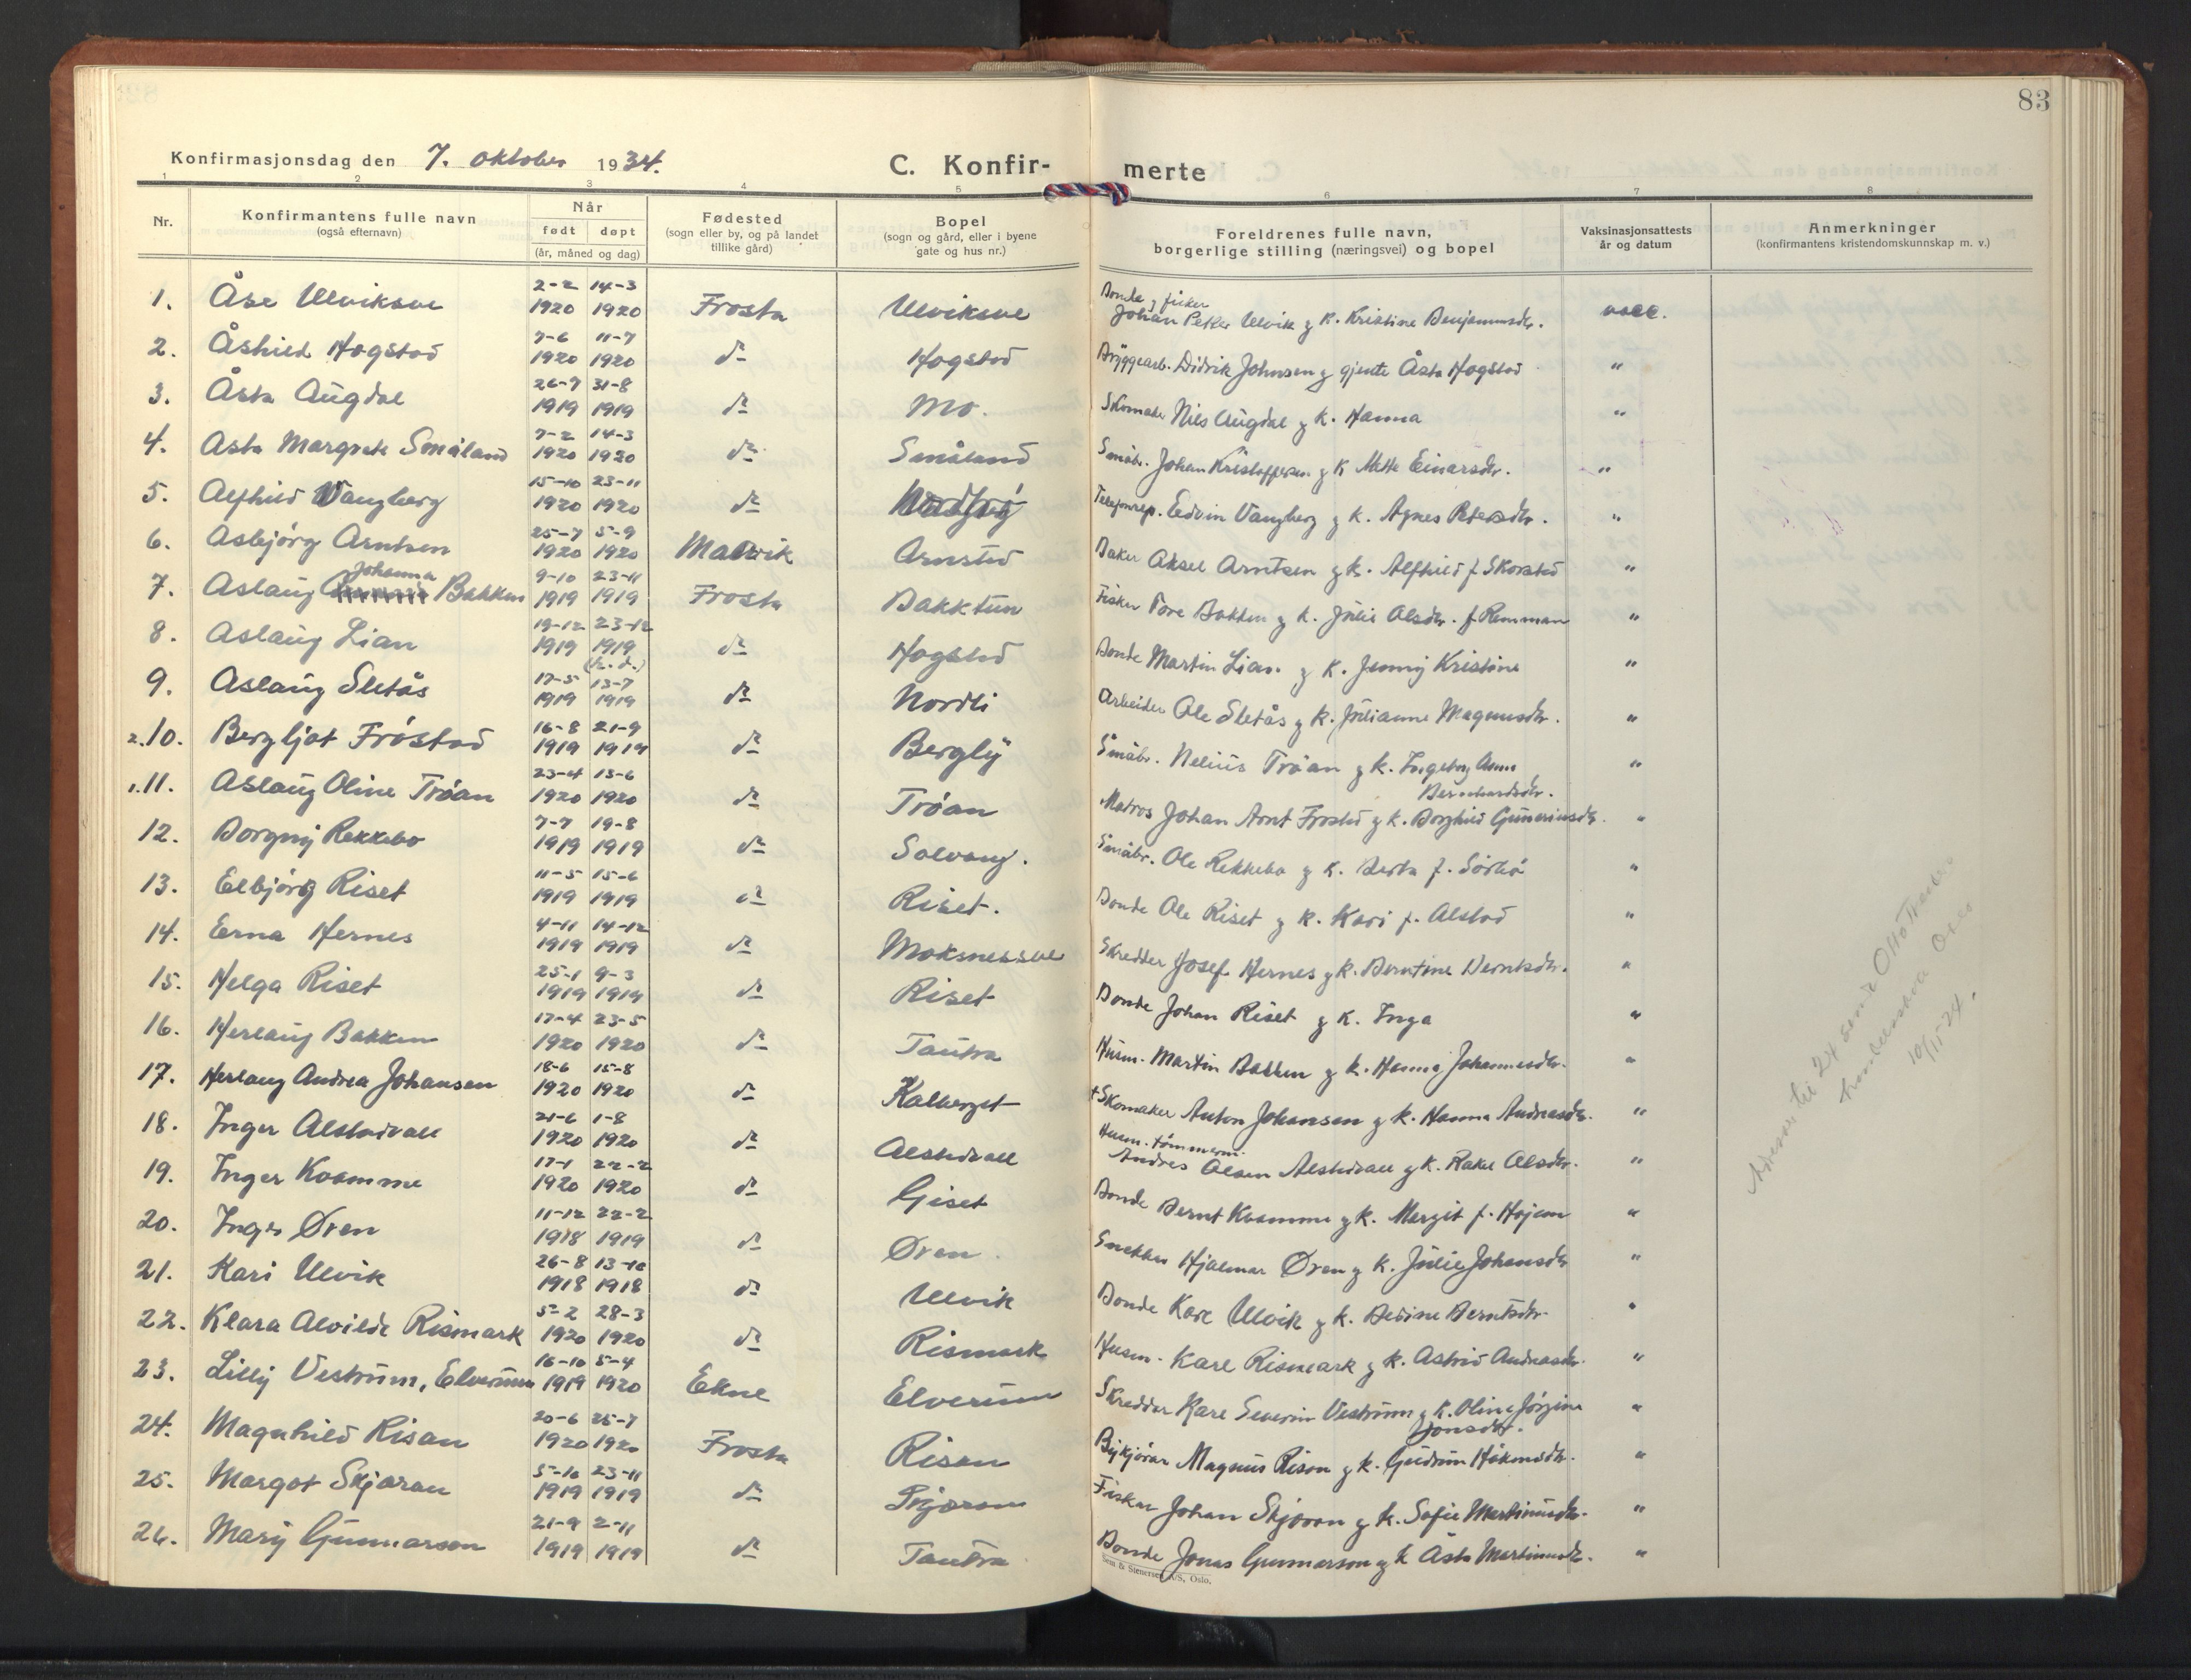 83
Konfirmasjonsdag den 7. oktober 1934.
C. Konfir- merte
1 2 3 4 5 6 7 8
Nr. Konfirmantens fulle navn (også efternavn) Når født døpt (år, måned og dag) Fødested (sogn eller by, og på landet tillike gård) Bopel (sogn og gård, eller i byene gate og hus nr.) Foreldrenes fulle navn, borgerlige stilling (næringsvei) og bopel Vaksinasjonsattests år og datum Anmerkninger (konfirmantens kristendomskunnskap m. v.)
1. Åse Ulviksve 2-2 1920 14-3 1920 Frosta Ulviksve Bonde g fisker Johan Peter Ulvik g k. Kristine Benjaminsdtr. vacc.
2. Åshild Hogstad 7-6 1920 11-7 1920 do Hogstad Bryggearb. Didrik Johnsen g gjente Åsta Hogstad "
3. Åsta Augdal 26-7 1919 31-8 1919 do Mo. Skomaker Nils Augdal g k. Hanna "
4. Asta Margrete Småland 7-2 1920 14-3 1920 do Småland Småbr. Johan Kristoffersen g k Mette Einarsdtr. "
5. Alfhild Vangberg 15-10 1920 23-11 1920 do Telefonrep. Edvin Vangberg g k. Agnes Petersdtr. "
6. Asbjörg Arntsen 25-7 1920 5-9 1920 Malvik Arnstad Baker Aksel Arntsen g k. Alfhild f. Skorstad "
7. Aslaug Johanna Bakken 9-10 1919 23-11 1919 Frosta Bakktun Fisker Tore Bakken g k. Julie Olsdtr. f. Remman "
8. Aslaug Lian 19-12 1919 23-12 1919 (h. d.) do Hogstad Bonde Martin Lian g k. Jenny Kristine "
9. Aslaug Sletås 17-5 1919 13-7 1919 do Nordli Arbeider Ole Sletås g k. Julianne Magnusdtr. "
2. 10. Bergljot Fróstad 16-8 1919 21-9 1919 do Bergly Småbr. Nelius Tróan g k. Ingeborg Anna Bernhardsdtr. "
1. 11. Aslaug Oline Tróan 23-4 1920 13-6 1920 do Tróan Matros Johan Arnt Frostad g k. Borghild Guneriusdtr. "
12. Borgny Rekkebo 7-7 1919 19-8 1919 do Solvang. Småbr. Ole Rekkebo g k. Berta f. Sörbö "
13. Elbjörg Riset 11-5 1919 15-6 1919 do Riset. Bonde Ole Riset g k. Kari f. Alstad "
14. Erna Hernes 4-11 1919 14-12 1919 do Moksnessve Skredder Josef Hernes g k. Berntine Berntsdtr. "
15. Helga Riset 25-1 1919 9-3 1919 do Riset Bonde Johan Riset g k. Inga "
16. Herlaug Bakken 17-4 1920 23-5 1920 do Tautra Husm. Martin Bakken g k. Hanna Johannesdtr. "
17. Herlaug Andrea Johansen 18-6 1920 15-8 1920 do Kalberget +Skomaker Anton Johansen g k. Hanna Andreasdtr. "
18. Inger Alstadvall 21-6 1920 1-8 1920 do Alstadvall Husm. tömmerm. Andres Olsen Alstadvall g k. Rakel Olsdtr. "
19. Inger Kvamme 17-1 1920 22-2 1920 do Giset Bonde Bernt Kvamme g k. Margit f. Hojem "
20. Inger Øren 11-12 1918 22-2 1919 do Øren Snekker Hjalmar Øren g k. Julie Johansdtr "
21. Kari Ulvik 26-8 1918 13-10 1918 do Ulvik Bonde Karl Ulvik g k. Bedine Berntsdtr. "
22. Klara Alvilde Rismark 5-2 1920 28-3 1920 do Rismark Husm. Karl Rismark g k. Astrid Andreasdtr. "
23. Lilly Vestrum, Elverum 16-10 1919 5-4 1920 Ekne Elverum Skredder Karl Severin Vestrum g k. Oline Jørgine Jonsdtr. "
24. Magnhild Risan 20-6 1920 25-7 1920 Frosta Risan Bykjörar Magnus Risan g k. Gudrun Håkonsdtr. "
25. Margot Skjæran 5-10 1919 23-11 1919 do Skjæran Fisker Johan Skjæran g k. Sofie Martinusdtr. "
26. Mary Gunnarson 21-9 1919 2-11 1919 do Tautra Bonde Jonas Gunnarson g k Åsta Martinusdtr. "
til 24 Otto
Oslo
10/11 -
Sem & Stenersen A/S, Oslo.